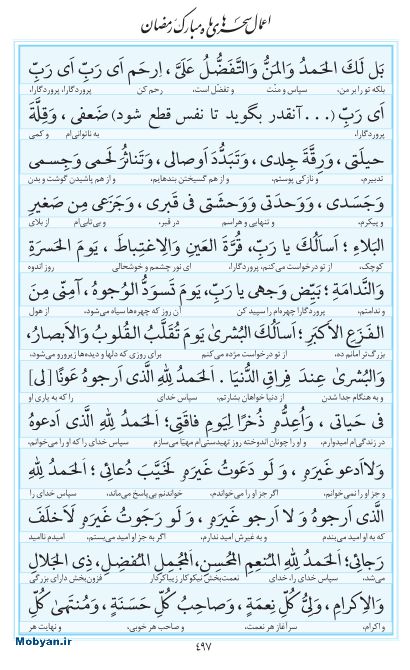 اعمال سحرهای ماه مبارک رمضان
بَل لَكَ الحَمدُ وَالمَنُّ وَالتَّفَضُّلُ عَلَىَّ ، اِرحَم اَى رَبِّ اَى رَبِّ
بلکه تو را بر من، سپاس و منّت و تفضّل است، رحم کن پروردگارا، پروردگارا،
اَى رَبِّ (... آنقدر بگوید تا نفس قطع شود) ضَعفى ، وَقِلَّةَ
پروردگارا، به ناتوانی‌ام و کمی
حيلَتى ، وَرِقَّةَ جِلدى ، وَتَبَدُّدَ اَوصالى ، وَتَناثُرَ لَحمى وَجِسمى
تدبیرم، و نازکی پوستم، و از هم گسیختن بندهایم، و از هم پاشیدن گوشت و بدن
وَجَسَدى ، وَوَحدَتى وَوَحشَتى فى قَبرى ، وَجَزَعى مِن صَغيرِ
و پیکرم، و تنهایی و هراسم در قبر، و بی‌تابی‌ام از بلای
البَلاءِ ؛ اَسأَلُكَ يا رَبِّ، قُرَّةَ العَينِ وَالاِغتِباطَ ، يَومَ الحَسرَةِ
کوچک، از تو درخواست می‌کنم، پروردگارا، ای نور چشمم و خوشحالی روز اندوه
وَالنَّدامَةِ ؛ بَيِّض وَجهى يا رَبِّ، يَومَ تَسوَدُّ الوُجوهُ ، آمِنّى مِنَ
و ندامتم، پروردگارا چهره‌ام را سپید کن آن روز که چهره‌ها سیاه می‌شود، از هول
الفَزَعِ الاَكبَرِ ؛ اَسأَلُكَ البُشرىٰ يَومَ تُقَلَّبُ القُلوبُ وَالاَبصارُ،
بزرگ‌تر امانم ده، از تو درخواست مژده می‌کنم برای روزی که دلها و دیده‌ها زیرورو می‌شود،
وَالبُشرىٰ عِندَ فِراقِ الدُّنيا . اَلحَمدُ لِلّٰهِ الَّذى اَرجوهُ عَونًا [لى]
و به هنگام جدا شدن از دنیا خواهان بشارتم، سپاس خدای را که به یاری او
فى حَياتى ، وَاُعِدُّهُ ذُخرًا لِيَومِ فاقَتى؛ اَلحَمدُ لِلّٰهِ الَّذى اَدعوهُ
در زندگی‌ام امیدوارم، و او را چونان اندوخته روز تهیدستی‌ام مهیّا می‌سازم سپاس خدای را که او را می‌خوانم،
وَلااَدعو غَيرَهُ ، وَ لَو دَعَوتُ غَيرَهُ لَخَيَّبَ دُعائى ؛ اَلحَمدُ لِلّٰهِ
و جز او را نمی‌خوانم، اگر جز او را می‌خواندم، خواندنم بی‌پاسخ می‌ماند، سپاس خدای را
الَّذى اَرجوهُ وَ لا اَرجو غَيرَهُ ، وَ لَو رَجَوتُ غَيرَهُ لَاَخلَفَ
که به او امید می‌بندم و به غیرش امید ندارم، اگر به جز او امید می‌بستم، امیدم ناامید
رَجائى؛ اَلحَمدُ لِلّٰهِ المُنعِمِ المُحسِنِ، اَلمُجمِلِ المُفضِلِ، ذِى الجَلالِ
می‌شد، سپاس خدای را، خدای نعمت‌بخش نیکوکار زیباکردار فزون‌بخش دارای بزرگی
وَالاِكرامِ ، وَلِىُّ كُلِّ نِعمَةٍ ، وَصاحِبُ كُلِّ حَسَنَةٍ ، وَمُنتَهىٰ كُلِّ
و اکرام، سرآغاز هر نعمت، و صاحب هر خوبی، و نهایت هر
۴۹۷
Mobyan.ir